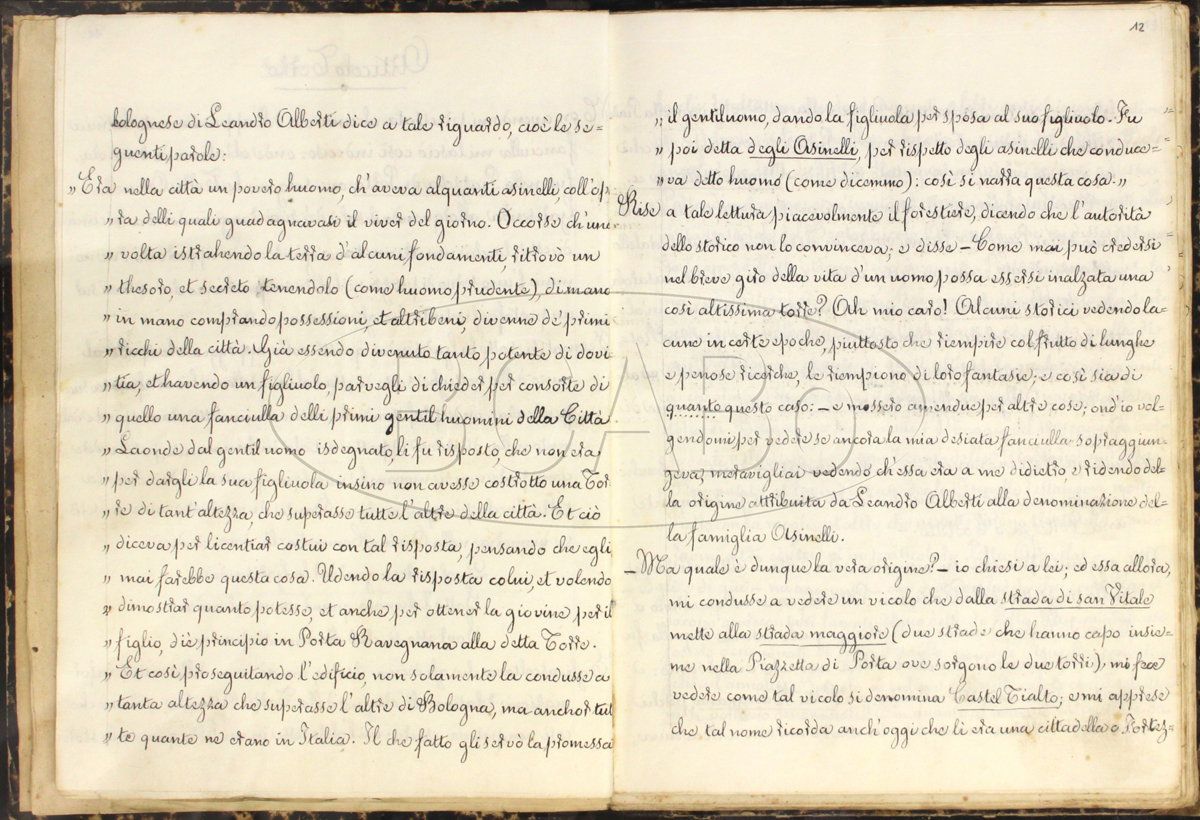 bolognese di Leandro Alberti dice a tale riguardo, cioè le se=
guenti parole:
„ Era nella città un povero huomo, ch'aveva alquanti asinelli, coll'op
„ ra delli quali guadagnavasi il viver del giorno. Occorse ch'una
„ volta istrahendo la terra d'alcuni fondamenti, ritrovò un
„ thesoro, et secreto tenendolo (come huomo prudente), di mano
„ in mano comprando possessioni, et altri beni, divenne de' primi
„ ricchi della città. Già essendo divenuto tanto potente di dovi
„ tia, et havendo un figliuolo, parvegli di chieder per consorte di
„ quello una fanciulla delli primi gentil huomini della Città.
„ Laonde dal gentil uomo isdegnato, li fu risposto, che non era
„ per dargli la sua figliuola insino non avesse costrotto una Tor
„ re di tant'altezza, che superasse tutte l'altre della città. Et ciò
„ diceva per licentiar costui con tal risposta, pensando che egli
„ mai farebbe questa cosa. Udendo la risposta colui, et volendo
„ dimostrar quanto potesse, et anche per ottener la giovine per il
„ figlio, diè principio in Porta Ravegnana alla detta Torre.
„ Et così proseguitando l'edificio, non solamente la condusse a
„ tanta altezza che superasse l'altre di Bologna, ma anchor tut
„ te quante ne erano in Italia. Il che fatto gli servò la promessa
12
„ il gentiluomo, dando la figliuola per sposa al suo figliuolo. Fu
„ poi detta degli Asinelli, per rispetto degli asinelli che conduce=
„ va detto huomo (come dicemmo): così si narra questa cosa. „
Rise a tale lettura piacevolmente il forestiere, dicendo che l'autorità
dello storico non lo convinceva; e disse – Come mai può credersi
nel breve giro della vita d'un uomo possa essersi inalzata una
così altissima torre? Ah mio caro! Alcuni storici vedendo la=
cune in certe epoche, piuttosto che riempire col frutto di lunghe
e penose ricerche, le riempiono di loro fantasie; e così sia di
quanto questo caso: – e mossero amendue per altre cose; ond'io vol=
gendomi per vedere se ancora la mia desiata fanciulla sopraggiun=
geva, meravigliai vedendo ch'essa era a me didietro, e ridendo del=
la origine attribuita da Leandro Alberti alla denominazione del=
la famiglia Asinelli.
– Ma quale è dunque la vera origine? – io chiesi a lei; ed essa allora,
mi condusse a vedere un vicolo che dalla strada di san Vitale
mette alla strada maggiore (due strade che hanno capo insie=
me nella Piazzetta di Porta ove sorgono le due torri), mi fece
vedere come tal vicolo si denomina Castel Tialto; e mi apprese
che tal nome ricorda anch'oggi che lì era una cittadella o Fortez=